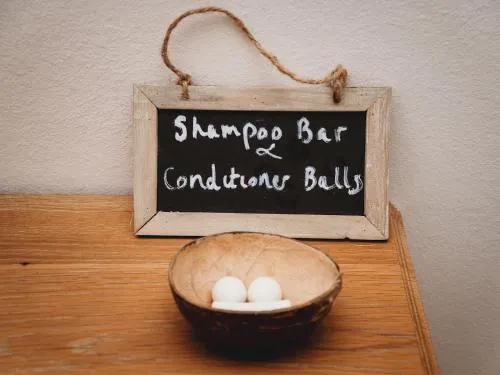 Shampoo Bar
&
Conditioner Balls